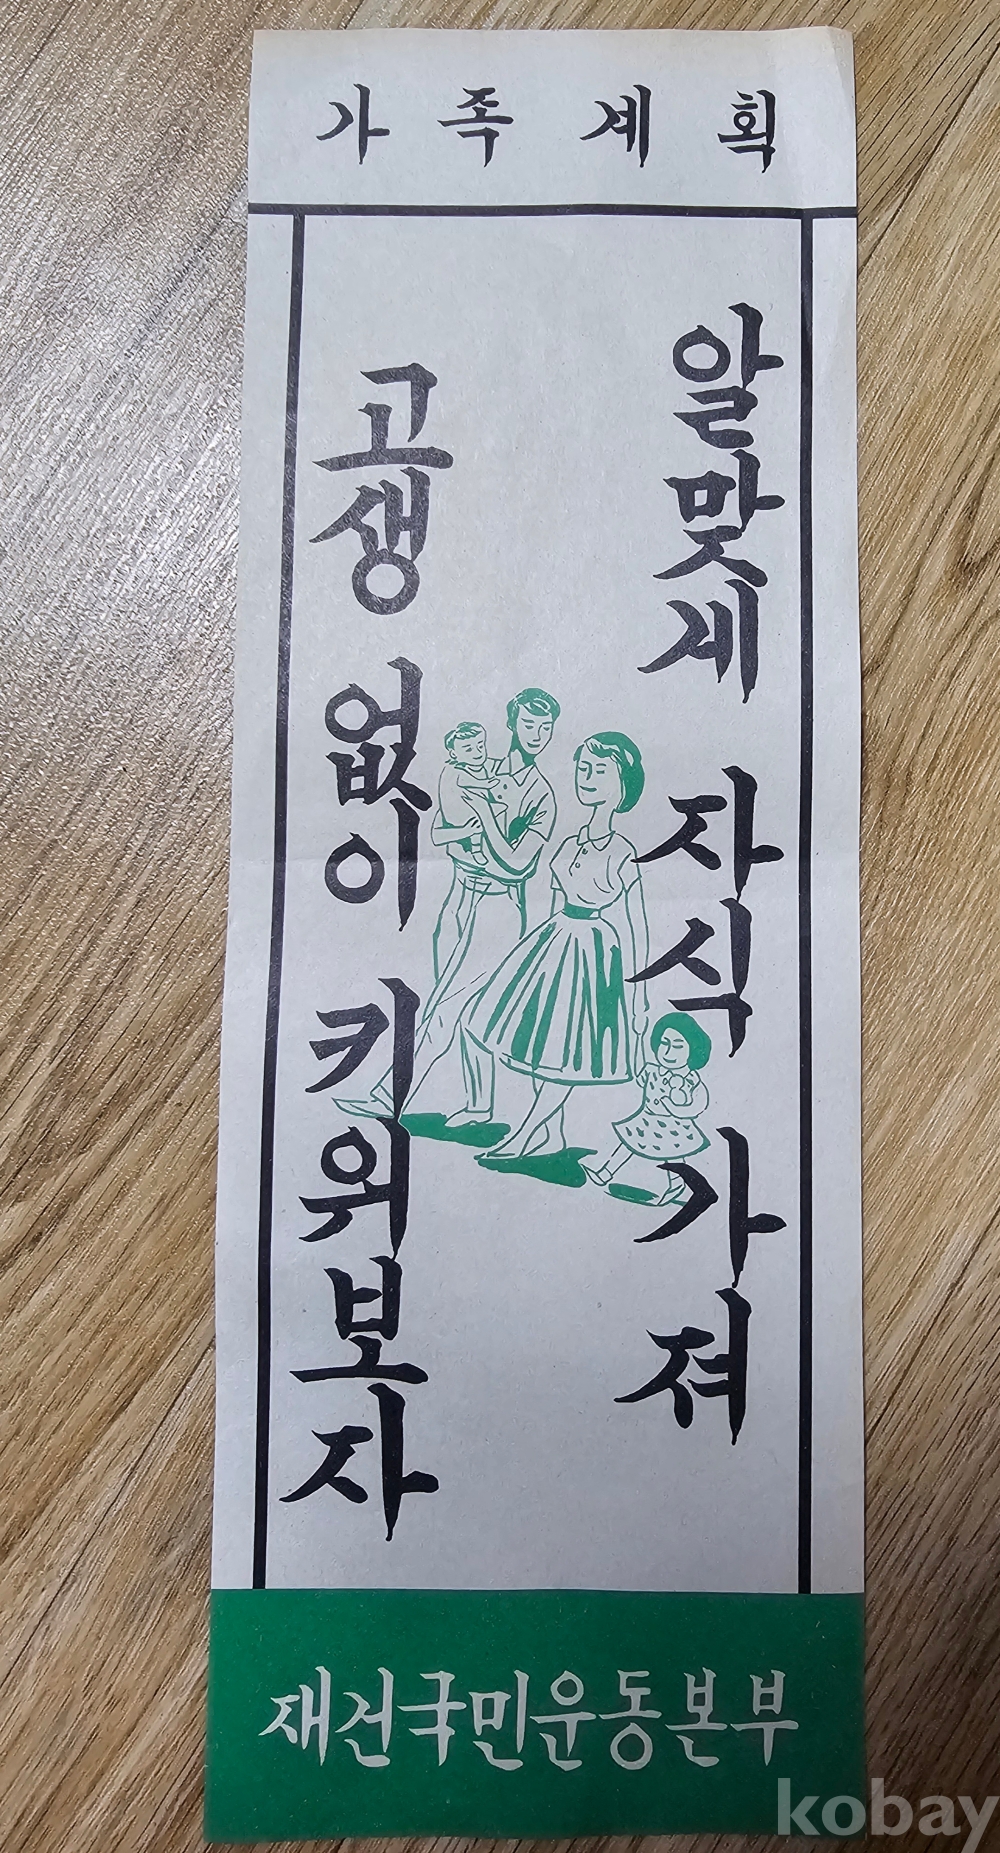 가족계획
알맞게 자식 가져
고생 없이 키워보자
재건국민운동본부
kobay